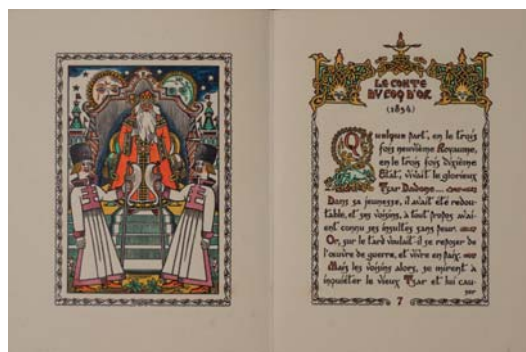 LE CONTE
DU COQ D'OR
(1834)
Quelque part, en le trois
fois neuvième Royaume,
en le trois fois dixième
État, vivait le glorieux
Tzar Dadone....
Dans sa jeunesse, il avait été redou-
table, et ses voisins, à tout propos avai-
ent connu ses insultes sans peur.
Or, sur le tard voulait-il se reposer de
l'œuvre de guerre, et vivre en paix.
Mais les voisins alors, se mirent à
inquiéter le vieux Tzar et lui cau-
ser
7